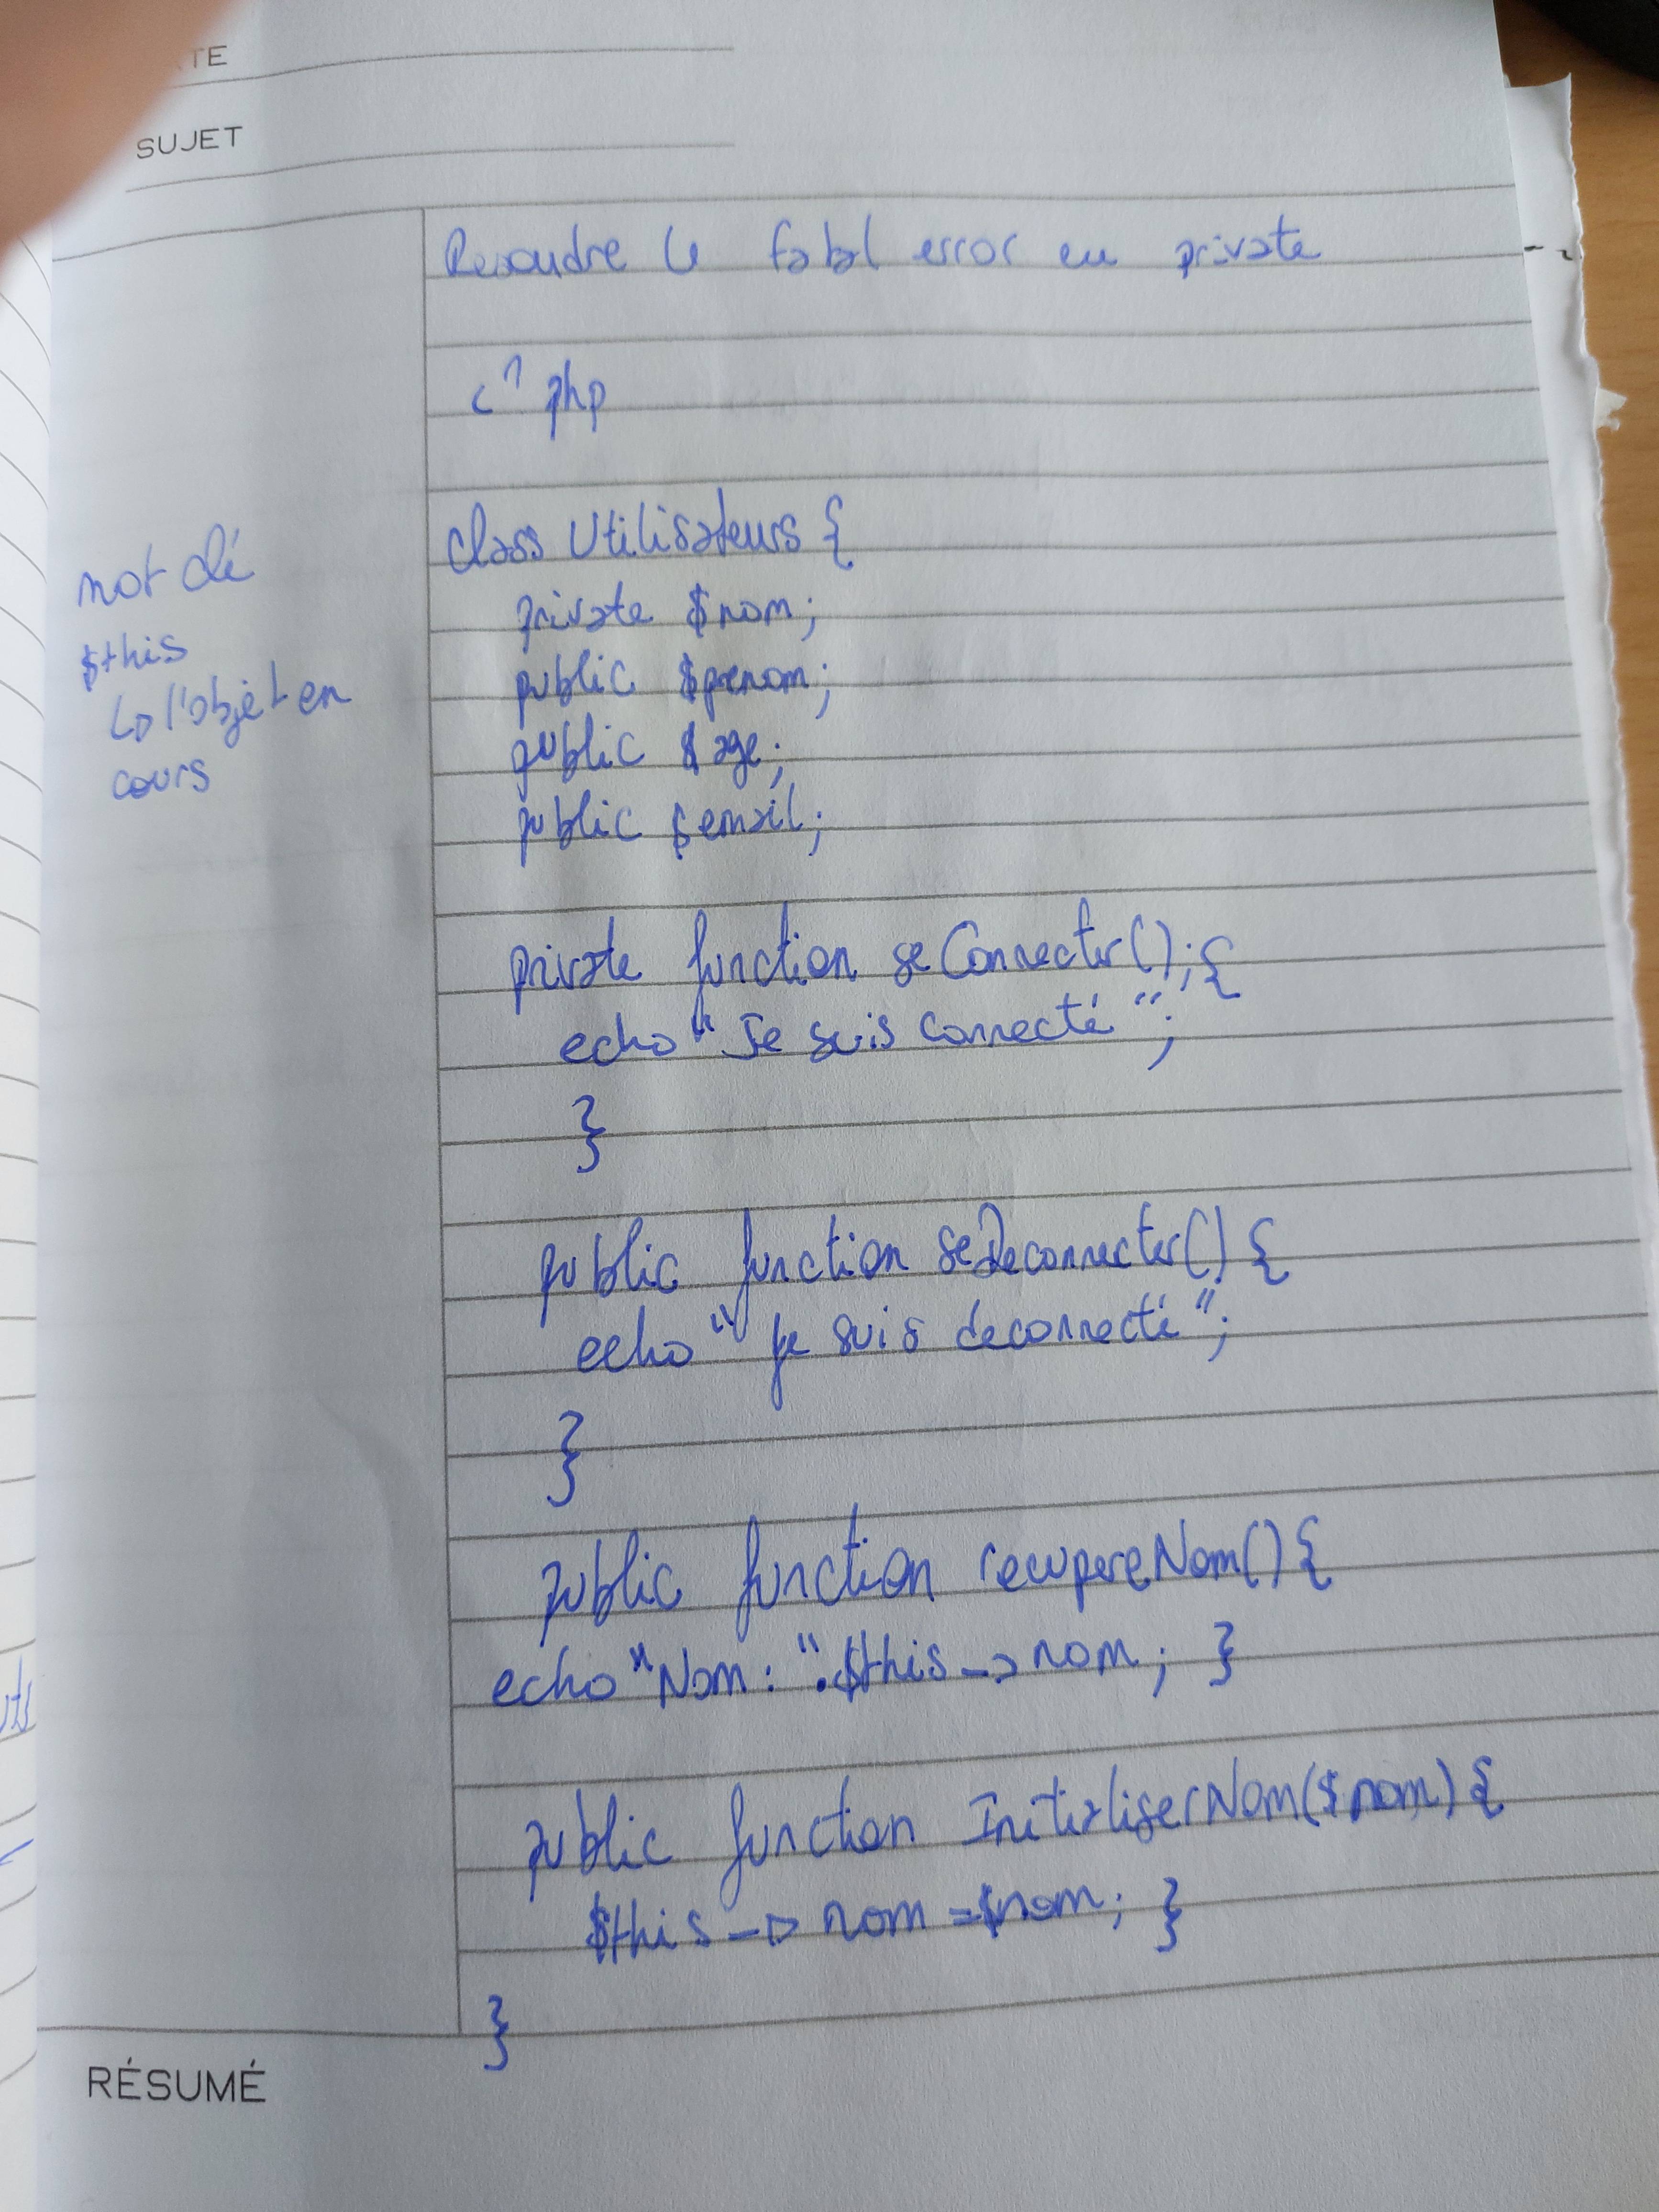 TE
SUJET
Resoudre le fatal error en private
<? php
class Utilisateurs {
private $nom;
public $prenom;
public $age;
public $email;
mot clé
$this
↳ l'objet en
cours
private function seConnecter();{
echo "Je suis connecté";
}
public function seDeconnecter() {
echo "je suis deconnecté";
}
public function recupereNom() {
echo "Nom: ".$this->nom; }
public function InitialiserNom($nom) {
$this -> nom = $nom; }
}
RÉSUMÉ